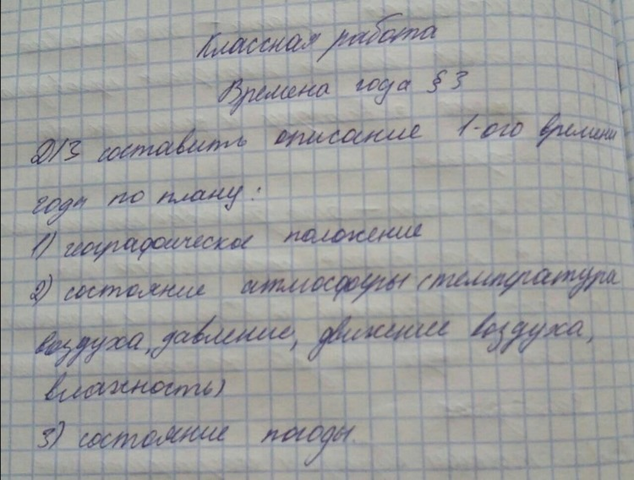 Классная работа
Времена года § 3
Д/З составить описание 1-ого времени
года по плану:
1) географическое положение
2) состояние атмосферы (температура
воздуха, давление, движение воздуха,
влажность)
3) состояние погоды.